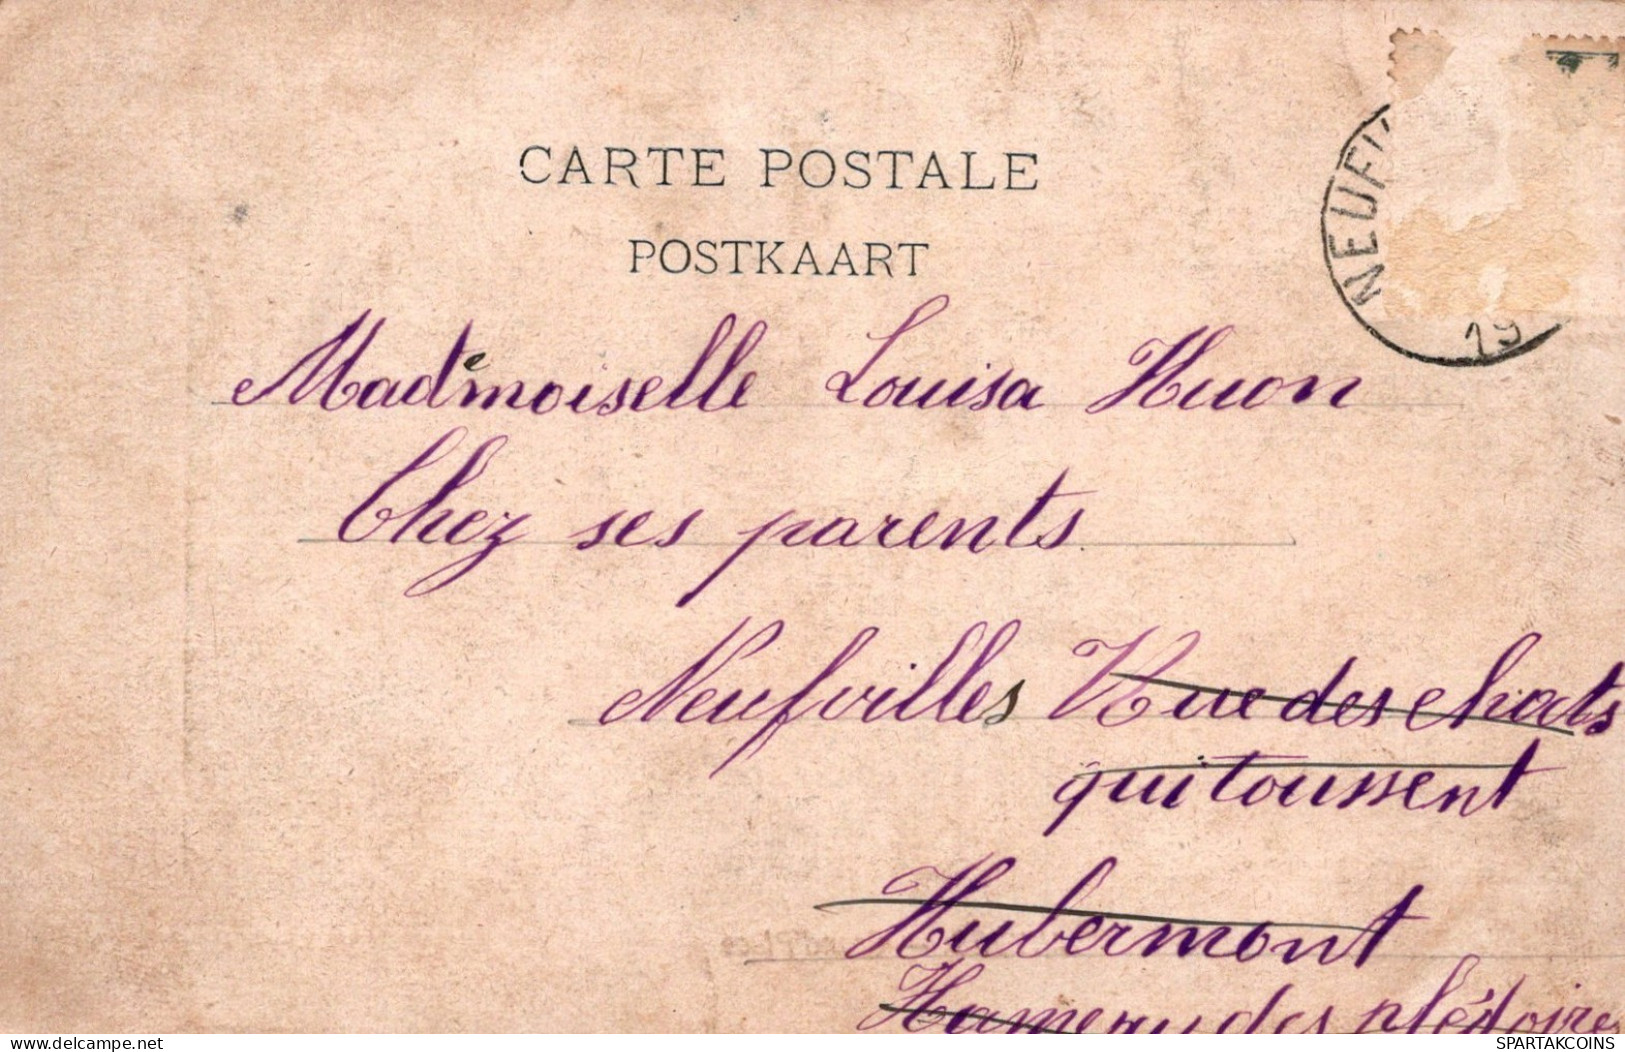 CARTE POSTALE
POSTKAART
NEUFV
19
Madmoiselle Louisa Huon
Chez ses parents
Neufvilles Rue des chats
qui toussent
Hubermont
Hameau des
SPARTAKCOINS
delcampe.net